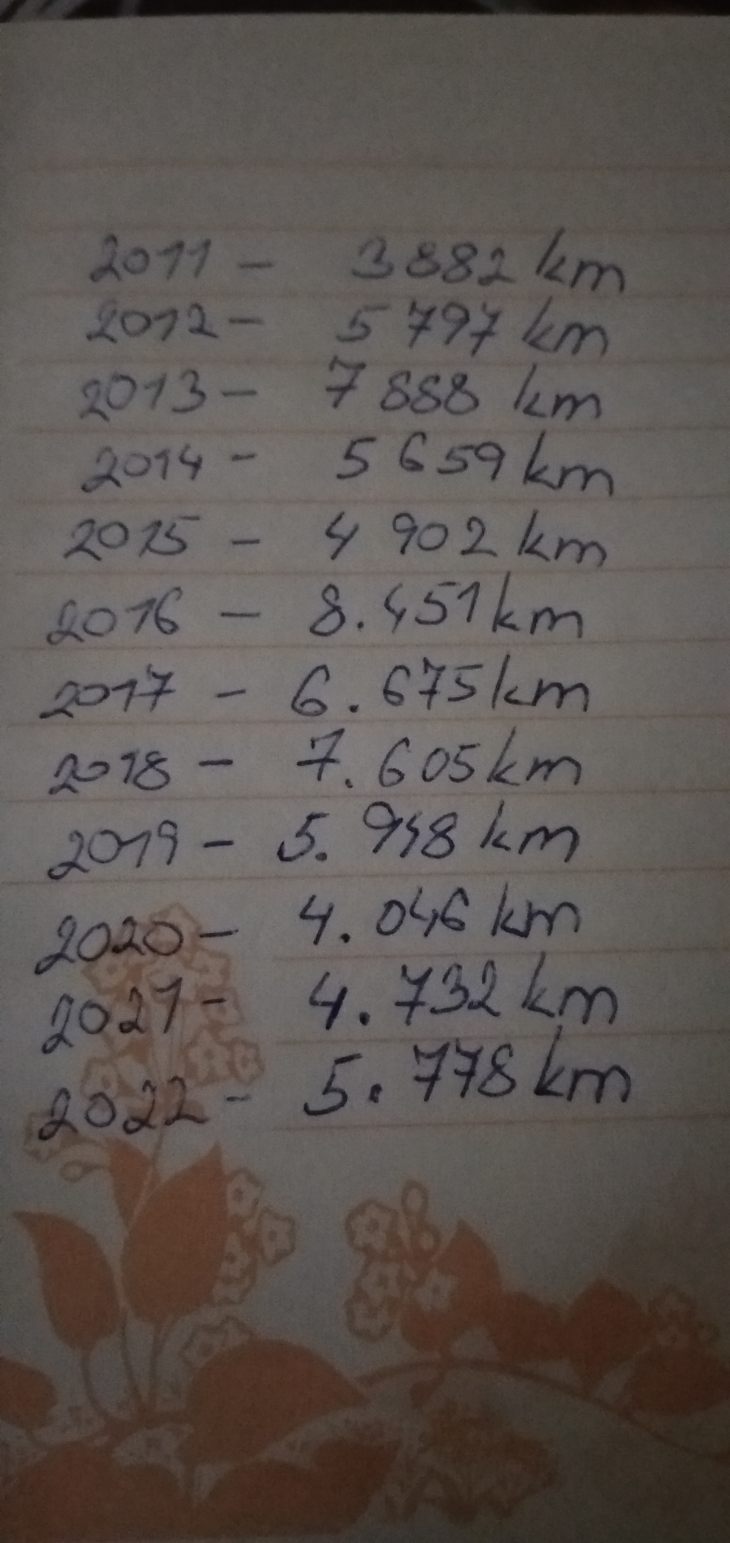 2011 - 3882 km
2012 - 5797 km
2013 - 7888 km
2014 - 5659 km
2015 - 4902 km
2016 - 8.451 km
2017 - 6.675 km
2018 - 7.605 km
2019 - 5.948 km
2020 - 4.046 km
2021 - 4.732 km
2022 - 5.778 km